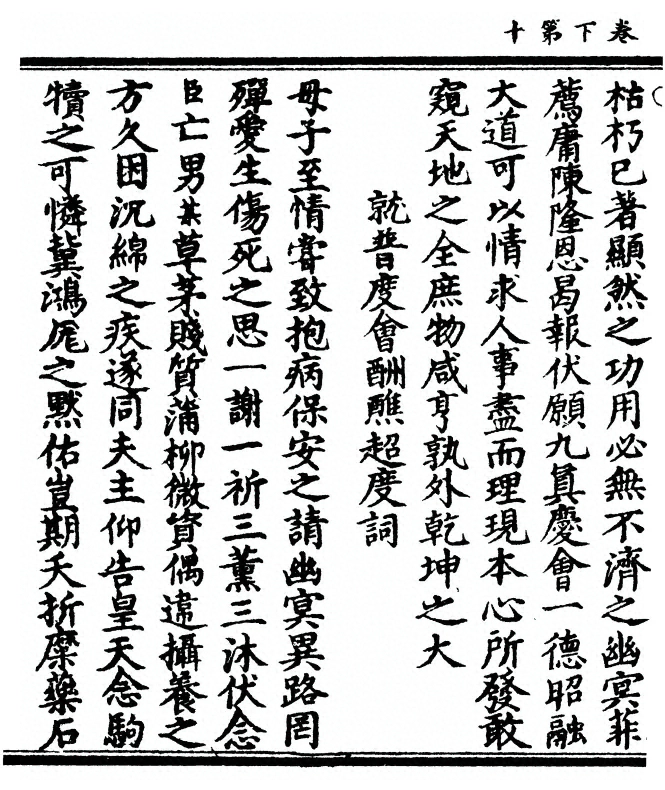 卷下第十
枯朽已著顯然之功用必無不濟之幽冥菲
薦庸陳隆恩曷報伏願九真慶會一德昭融
大道可以情求人事盡而理現本心所發敢
窺天地之全庶物咸亨孰外乾坤之大
就普度會酬醮超度詞
母子至情嘗致抱病保安之請幽冥異路罔
殫愛生傷死之思一謝一祈三薰三沐伏念
臣亡男某草茅賤質蒲柳微資偶違攝養之
方久困沉綿之疾遂同夫主仰告皇天念駒
犢之可憐冀鴻庬之默佑豈期夭折糜藥石